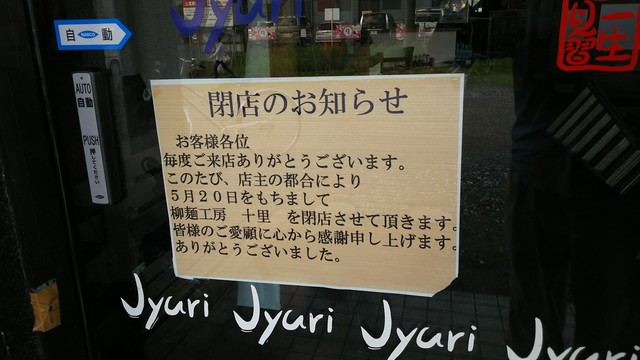 Jyuri
自動
AUTO
自動
PUSH
押してください
一生
見習
閉店のお知らせ
お客様各位
毎度ご来店ありがとうございます。
このたび、店主の都合により
5月20日をもちまして
柳麺工房　十里　を閉店させて頂きます。
皆様のご愛顧に心から感謝申し上げます。
ありがとうございました。
Jyuri Jyuri Jyuri Jyuri